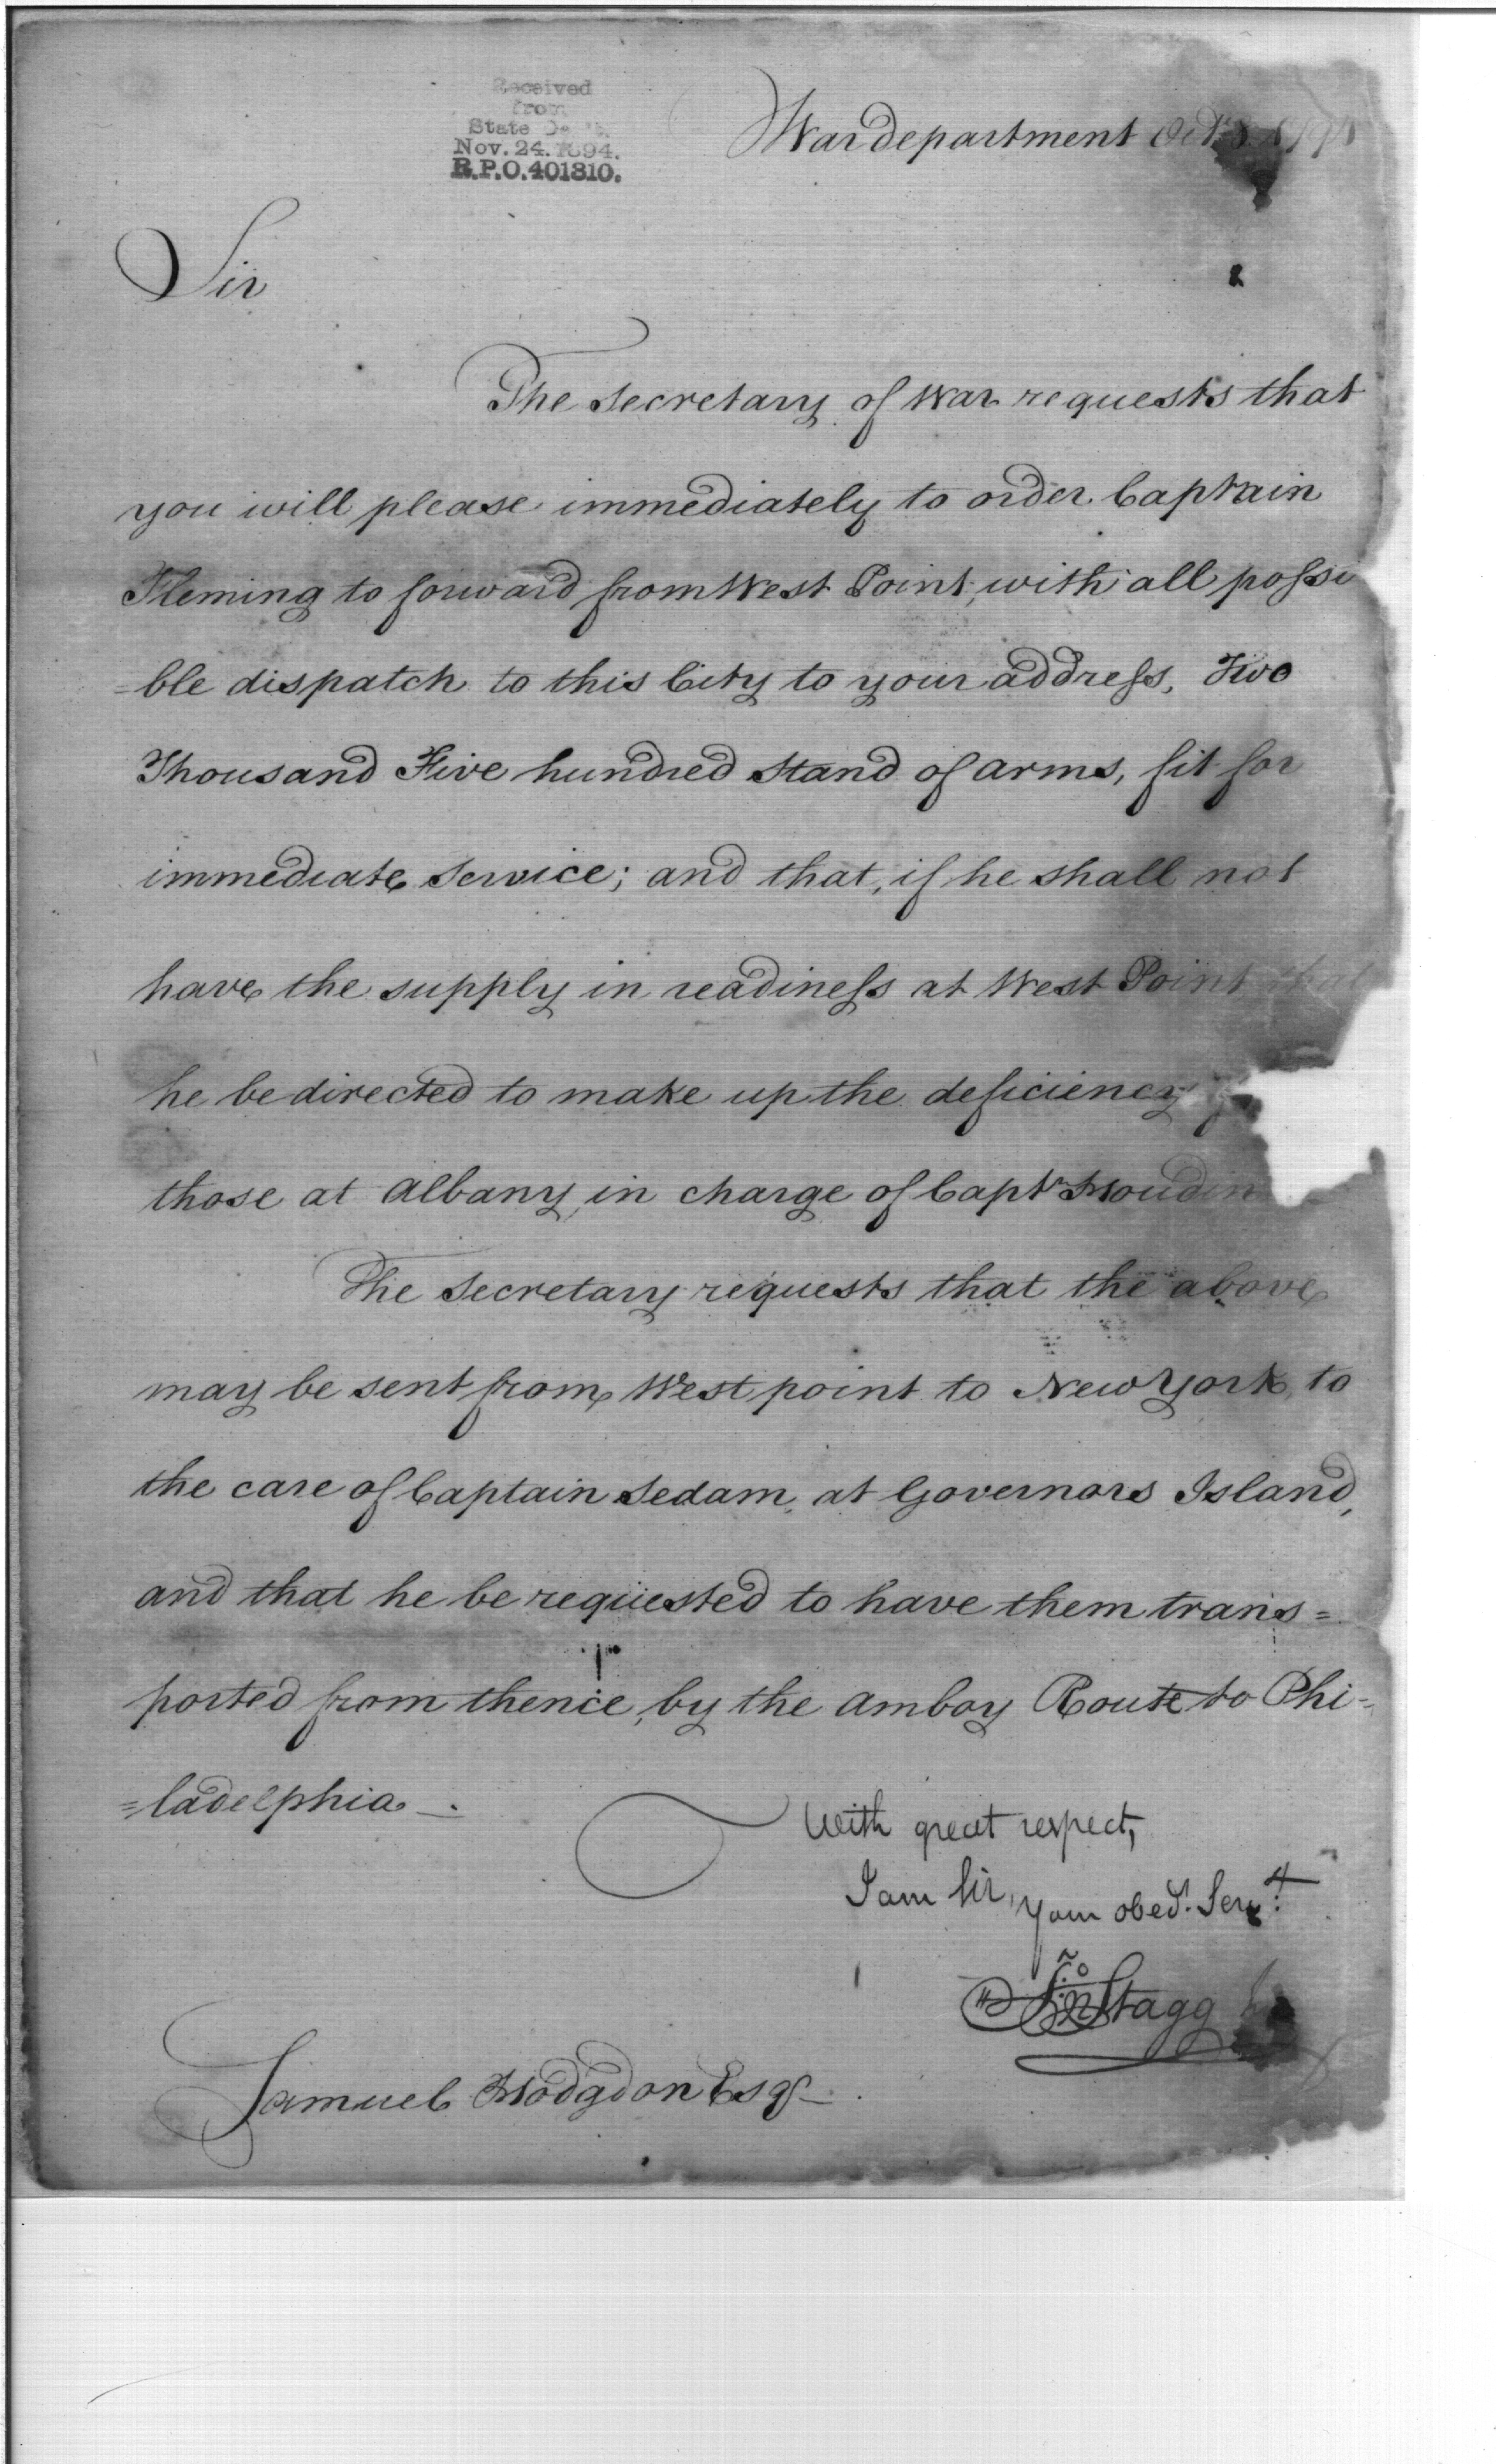 Received
from
State
Nov. 24. 1894.
R.P.O. 401310.
War department Oct
Sir
The Secretary of War requests that
you will please immediately to order Captain
Fleming to forward from West Point, with all possi
=ble dispatch to this City to your address, Two
Thousand Five hundred Stand of arms, fit for
immediate service; and that, if he shall not
have the supply in readiness at West Point that
he be directed to make up the deficiency
those at Albany, in charge of Capt
The Secretary requests that the above
may be sent from West point to New York, to
the care of Captain Sedam, at Governors Island,
and that he be requested to have them trans=
ported from thence, by the Amboy Route to Phi=
=ladelphia —.
With great respect,
I am Sir, your obed.t Serv.t
Jno Stagg
Samuel Hodgdon Esqr